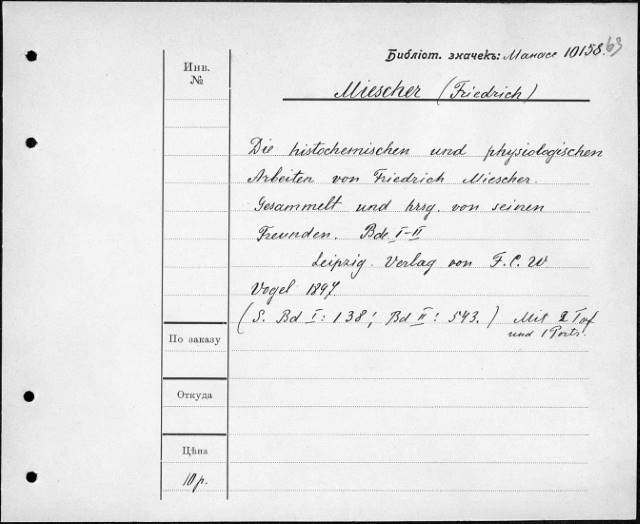 Библіот. значекъ: Манасс 10158.63
Инв.
№
Miescher (Friedrich)
Die histochemischen und physiologischen
Arbeiten von Friedrich Miescher.
Gesammelt und hrsg. von seinen
Freunden. Bde. I-II
Leipzig. Verlag von F. C. W
Vogel 1897
(S. Bd I: 138; Bd II: 543.) Mit 2 Taf
und 1 Portr.
По заказу
Откуда
Цѣна
10 р.